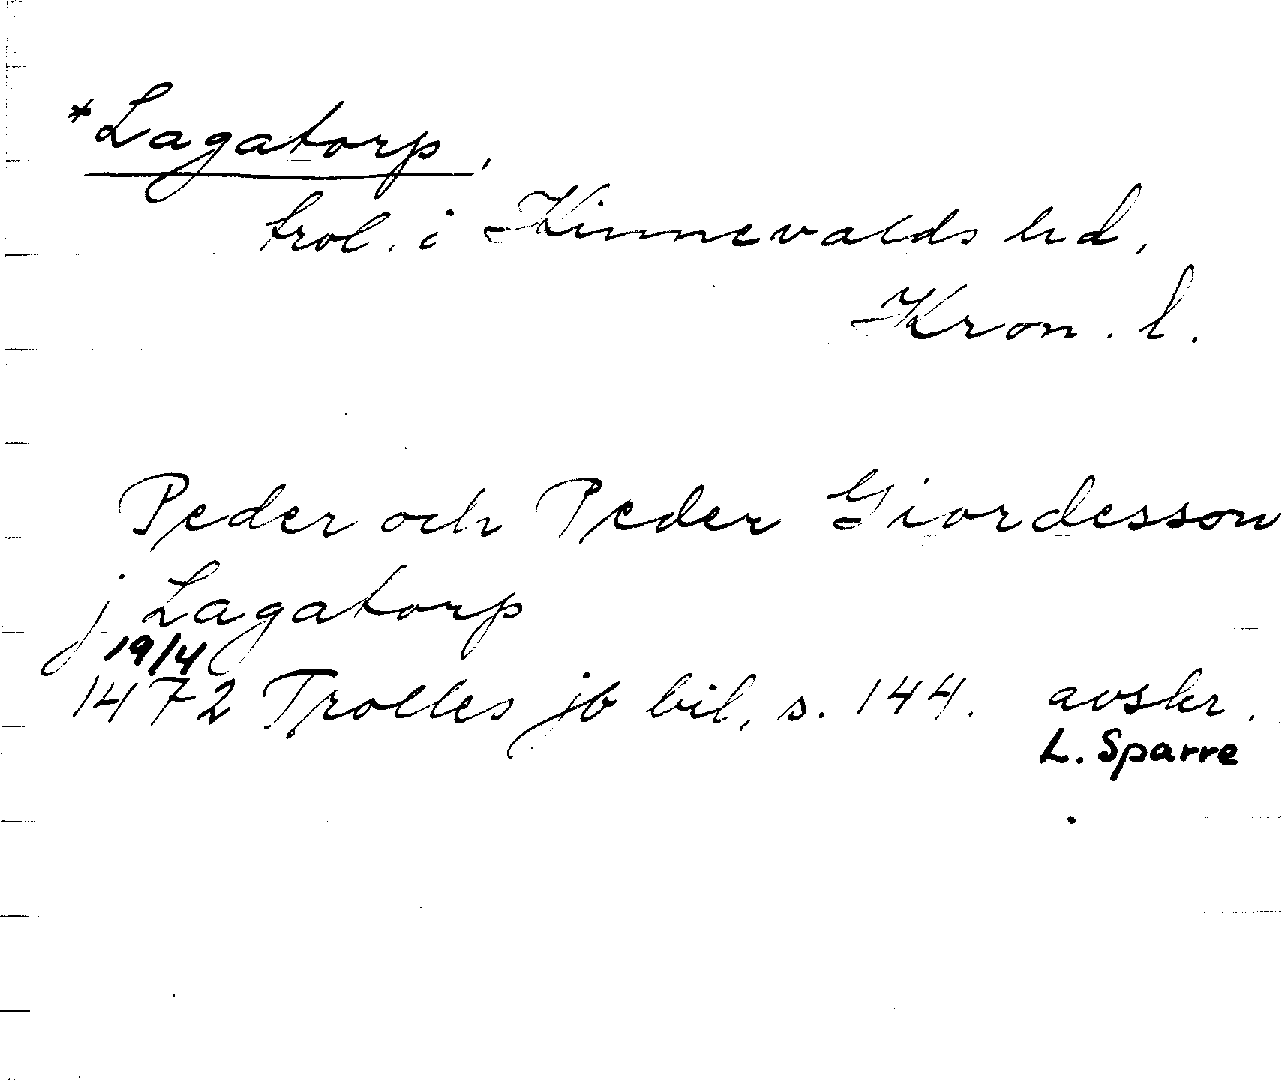 *Lagatorp,
trol. i Kinnevalds hd,
Kron. l.
Peder och Peder Giordesson
j Lagatorp
19/4
1472 Trolles jb bil, s. 144. avskr.
L. Sparre